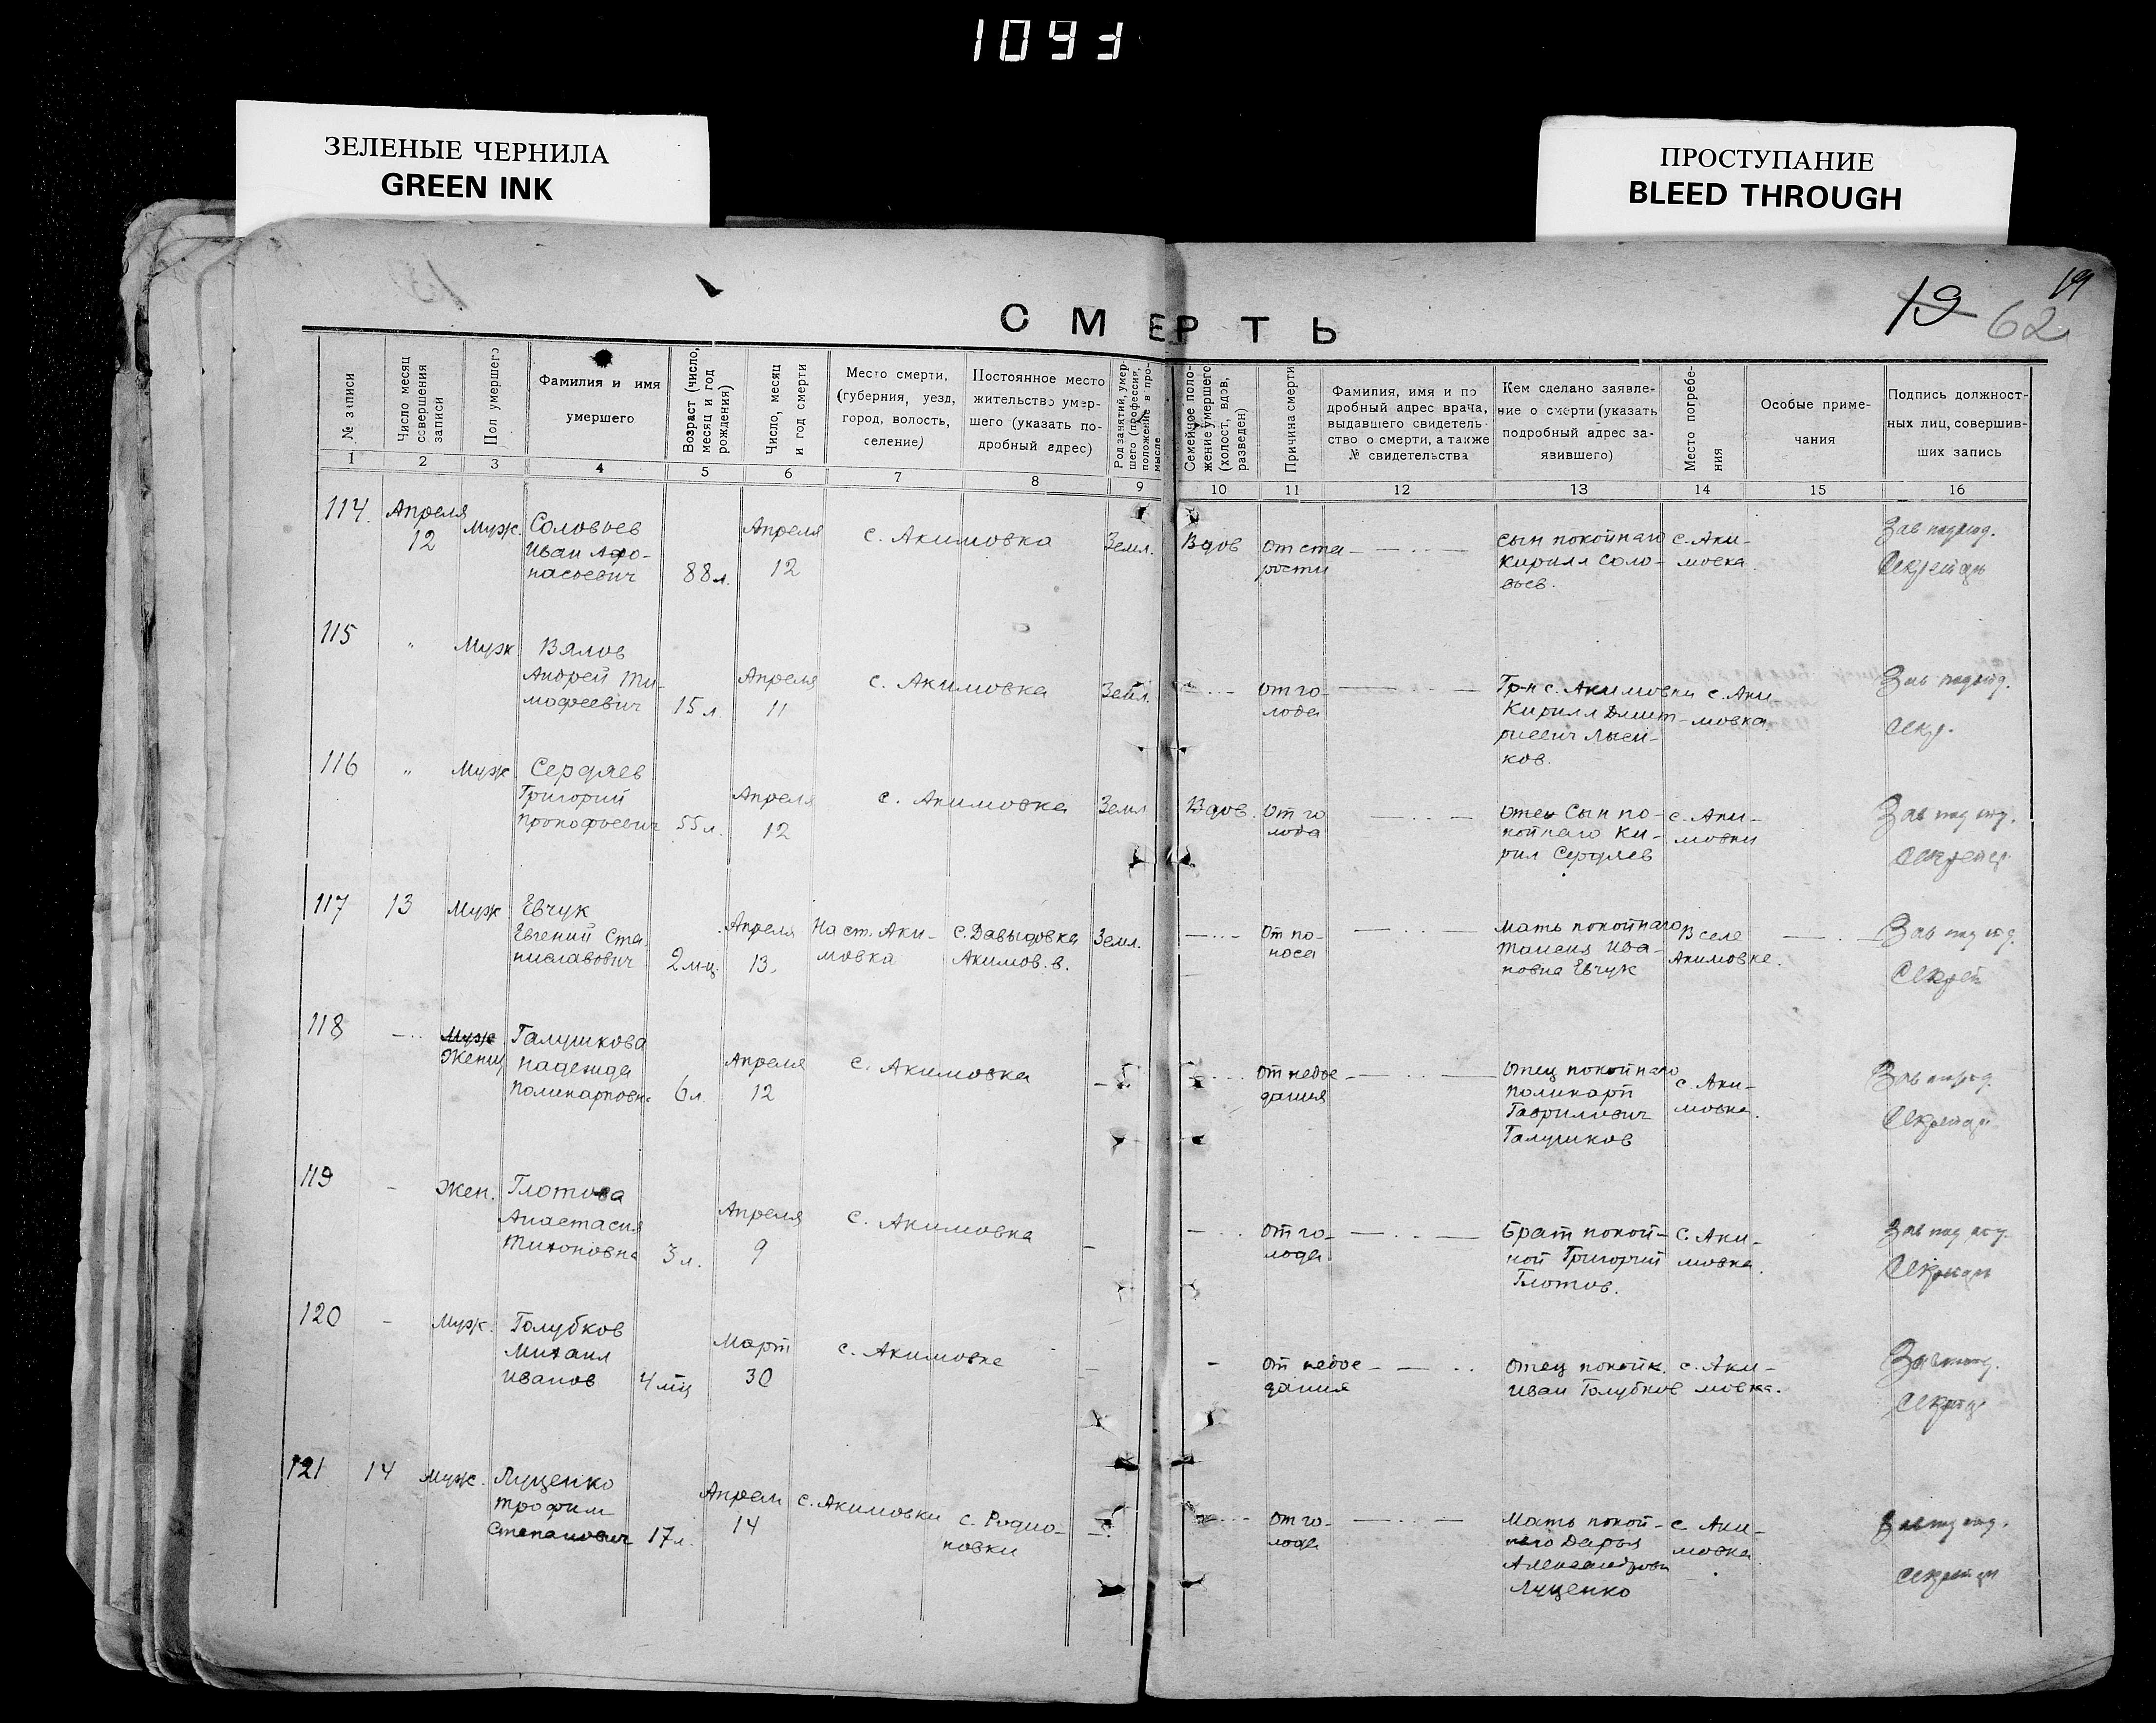 1093
ЗЕЛЕНЫЕ ЧЕРНИЛА
GREEN INK
ПРОСТУПАНИЕ
BLEED THROUGH
19
19
62
СМЕРТЬ
№ записи
Число месяц совершения записи
Пол умершего
Фамилия и имя умершего
Возраст (число, месяц и год рождения)
Число, месяц и год смерти
Место смерти, (губерния, уезд, город, волость, селение)
Постоянное место жительство умершего (указать подробный адрес)
Род занятий, умершего (профессия, положение в промысле
Семейное положение умершего (холост, вдов, разведен)
Причина смерти
Фамилия, имя и подробный адрес врача, выдавшего свидетельство о смерти, а также № свидетельства
Кем сделано заявление о смерти (указать подробный адрес заявившего)
Место погребения
Особые примечания
Подпись должностных лиц, совершивших запись
1 2 3 4 5 6 7 8 9 10 11 12 13 14 15 16
114. Апреля 12 Муж. Соловьев Иван Афонасьевич 88 л. Апреля 12 с. Акимовка Земл. Вдов от старости сын покойнаго Кирилл Соловьев. с. Акимовка. Зав подотд. Секретарь
115 " Муж Вялов Андрей Тимофеевич 15 л. Апреля 11 с. Акимовка Земл. от голода Гр-н с. Акимовки Кирилл Дмитриевич с. Акимовка Зав подотд. Секр.
116 " Муж Сердяев Григорий Прокофьевич 55 л. Апреля 12 с. Акимовка Земл Вдов. От голода отец Сын покойнаго Кирил Сердяев с. Акимовки Зав под отд. Секретар
117 13 Муж Евчук Евгений Станиславович 2 м-ц. Апреля 13. На ст. Акимовка с. Давыдовка Акимов. в. Земл. От поноса Мать покойнаго Таисия Ивановна Евчук В селе Акимовке. Зав под отд. Секрет
118 Муж Женщ Галушкова Надежда Поликарповна 6 л. Апреля 12 с. Акимовка От недоедания Отец покойнаго Поликарп Гаврилович Галушков с. Акимовка. Зав подотд. Секретар
119 - Жен. Глотова Анастасия Тихоновна 3 л. Апреля 9 с. Акимовка - от голода Брат покойной Григорий Глотов. с. Акимовка. Зав под отд. Секретарь
120 - Муж. Голубков Михаил Иванов 4 мц Март 30 с. Акимовке - от недоедания Отец покойн. Иван Голубков с. Акимовка. Зав подотд. Секрет
121 14 Муж. Луценко Трофим Степанович 17 л. Апрели 14 с. Акимовки с. Родионовки От голода Мать покойнаго Дарья Александрови Луценко с Акимовка Зав под отд. Секретар